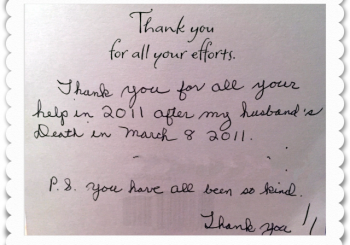 Thank you
for all your efforts.
Thank you for all your
help in 2011 after my husband's
Death in March 8 2011.
P.S. you have all been so kind.
Thank you !!